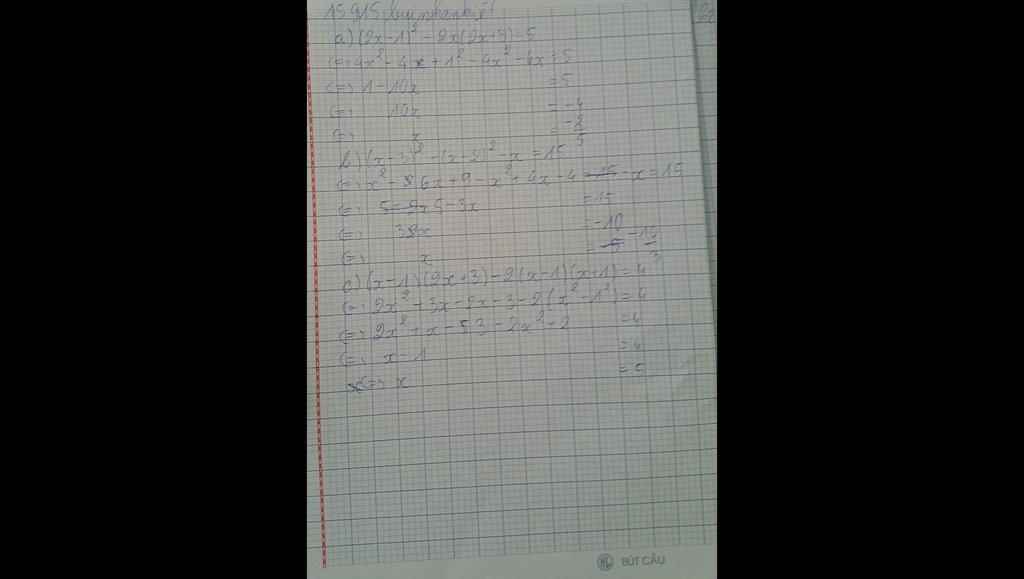 15915 buinhankiet
a) (2x-1)² - 2x(2x+3) = 5
(=) 4x² - 4x + 1² - 4x² - 6x = 5
(=) 1 - 10x = 5
(=) 10x = -4
(=) x = -2/5
b) (x-3)² - (x-2)² - x = 15
(=) x² - 6x + 9 - x² + 4x - 4 = 15 - x = 15
(=) 5 - 2x 5 - 3x = 15
(=) 3x = -10
(=) x = -5 -10/3
c) (x-1)(2x+3) - 2(x-1)(x+1) = 4
(=) 2x² + 3x - 2x - 3 - 2(x² - 1²) = 4
(=) 2x² + x - 3 - 2x² + 2 = 4
(=) x - 1 = 4
(=) x = 5
HL BÚT CÂU